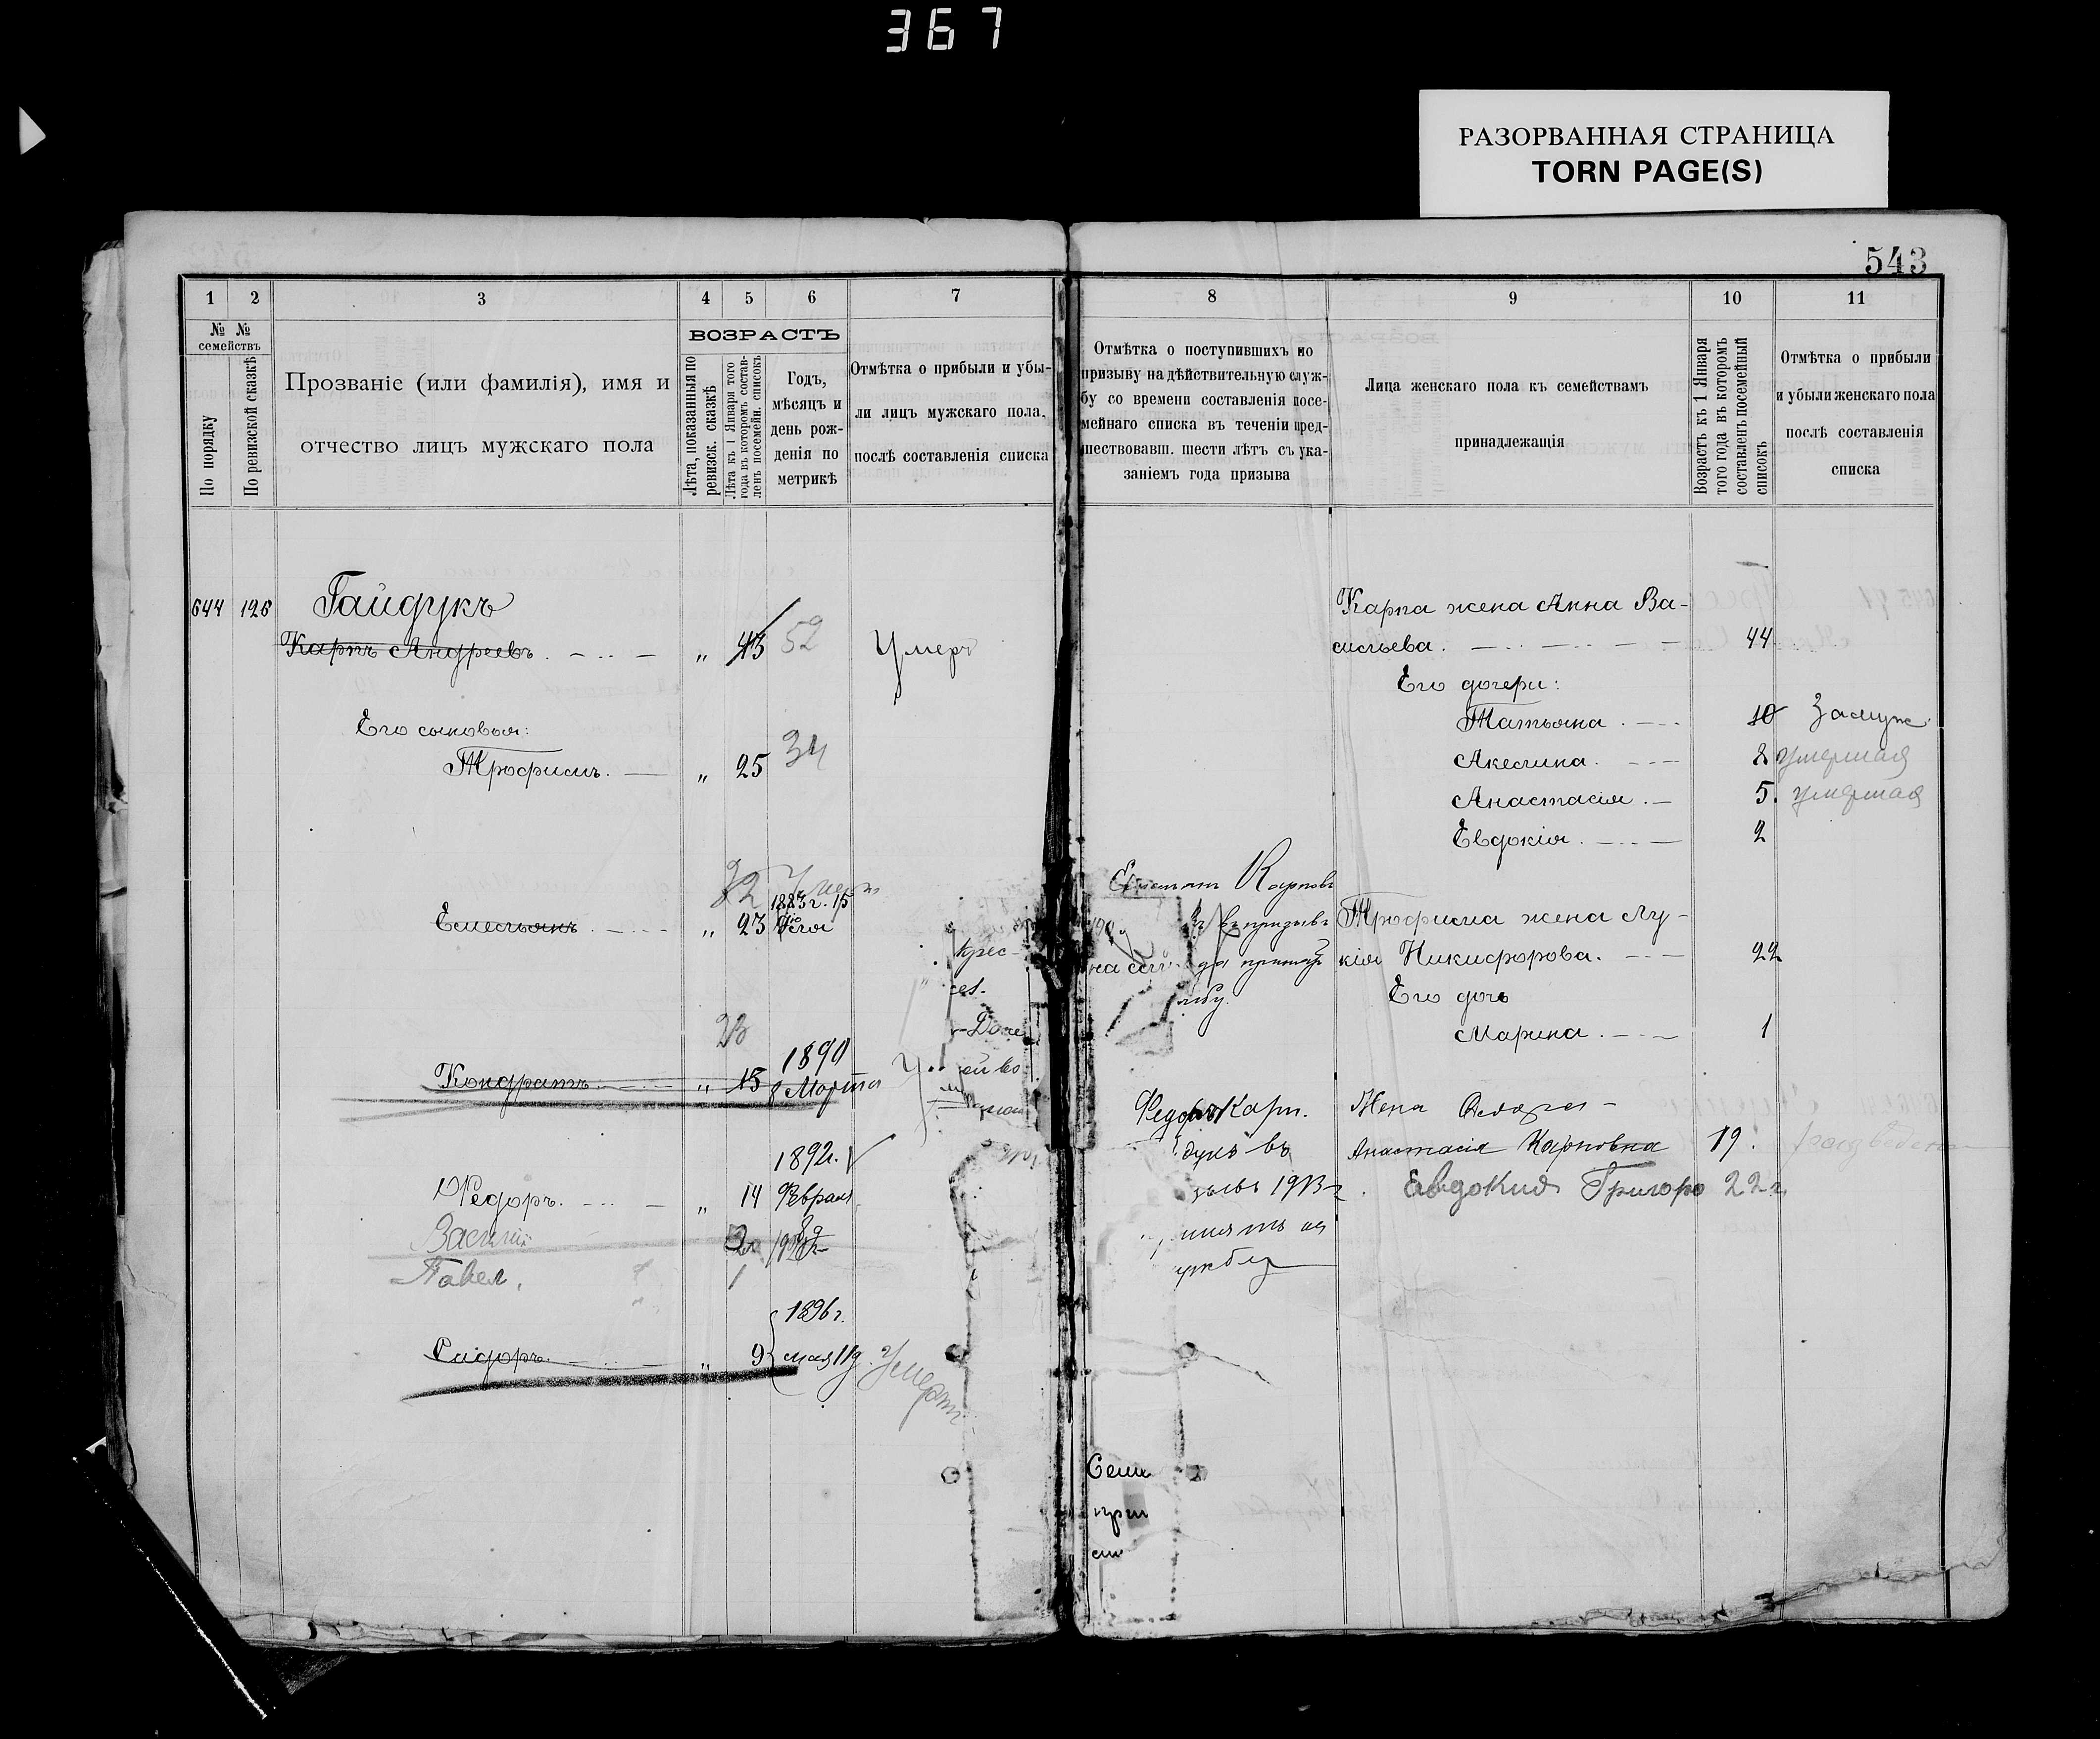 367
РАЗОРВАННАЯ СТРАНИЦА
TORN PAGE(S)
543
1 2 3 4 5 6 7
№ № семействъ
По порядку
По ревизской сказкѣ
Прозваніе (или фамилія), имя и
отчество лицъ мужскаго пола
ВОЗРАСТЪ
Лѣта, показанныя по
ревизск. сказкѣ
Лѣта къ 1 Января того
года въ которомъ состав-
ленъ посемейн. списокъ
Годъ,
мѣсяцъ и
день рож-
денія по
метрикѣ
Отмѣтка о прибыли и убы-
ли лицъ мужскаго пола,
послѣ составленія списка
644 126 Гайдукъ
Карпъ Андреевъ „ 43 52 Умеръ
Его сыновья:
Трофимъ „ 25 34
32 Умеръ
1883 г. 15
Емельянъ „ 23
крес-
28
1890
Кондратъ „ 15 8 Марта
1892 г.
Федоръ „ 14 Февраля
Василій
Павел 1
1896 г.
Сидоръ „ 9 мая 11 д. Умеръ
8 9 10 11
Отмѣтка о поступившихъ по
призыву на дѣйствительную служ-
бу со времени составленія посе-
мейнаго списка въ теченіи пред-
шествовавш. шести лѣтъ съ ука-
заніемъ года призыва
Лица женскаго пола къ семействамъ
принадлежащія
Возрастъ къ 1 Января
того года въ которомъ
составленъ посемейный
списокъ
Отмѣтка о прибыли
и убыли женскаго пола
послѣ составленія
списка
Карпа жена Анна Ва-
сильева 44
Его дочери:
Татьяна 10 Замуж
Акелина 8 умершая
Анастасія 5 умершая
Евдокія 2
Карповъ
Трофима жена Лу-
кія Никифорова 22
Его дочь
Марина 1
Федоръ Карп.
дукъ въ
1913 г.
Жена
Анастасія Карповна 19
Евдокия Григоро 22 г.
Семе
при